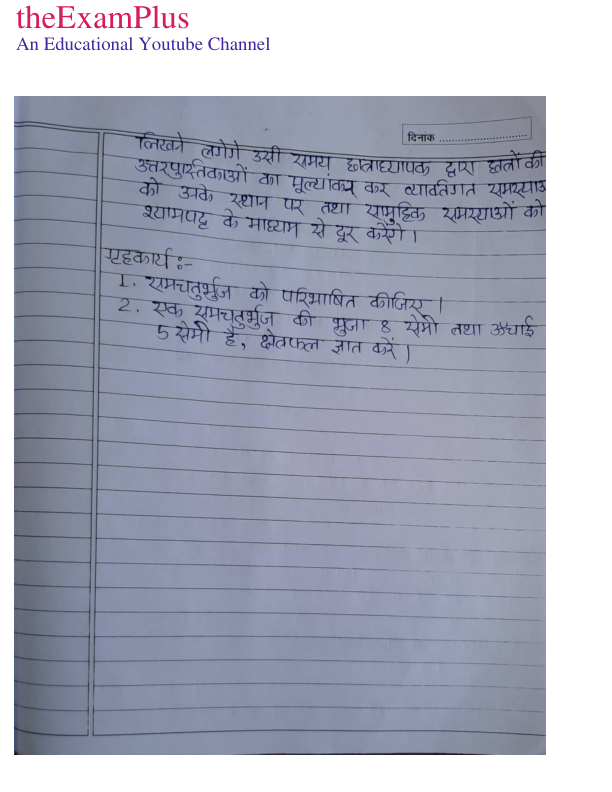 theExamPlus
An Educational Youtube Channel
दिनांक
लिखने लगेगे उसी समय छात्राध्यापक द्वारा छात्रों की
उत्तरपुस्तिकाओं का मूल्यांकन कर व्यक्तिगत समस्याओ
को उनके स्थान पर तथा सामुहिक समस्याओं को
श्यामपट्ट के माध्यम से दूर करेंगे।
गृहकार्य :-
1. समचतुर्भुज को परिभाषित कीजिए।
2. एक समचतुर्भुज की भुजा 8 सेमी तथा ऊंचाई
5 सेमी है, क्षेत्रफल ज्ञात करें।